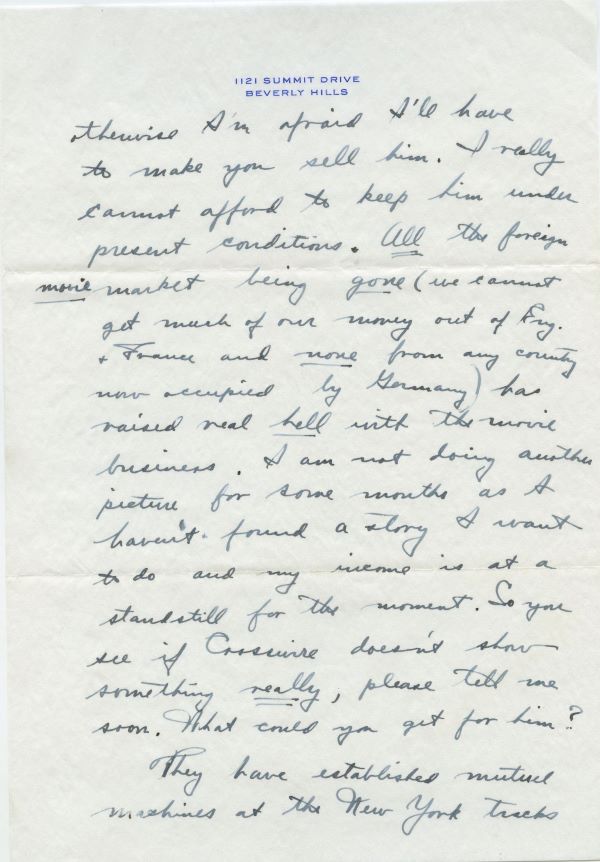 1121 SUMMIT DRIVE
BEVERLY HILLS
otherwise I'm afraid I'll have
to make you sell him. I really
cannot afford to keep him under
present conditions. All the foreign
movie market being gone (we cannot
get much of our money out of Eng.
+ France and none from any country
now occupied by Germany) has
raised real hell with the movie
business. I am not doing another
picture for some months as I
haven't found a story I want
to do and my income is at a
standstill for the moment. So you
see if Crosswire doesn't show
something really, please tell me
soon. What could you get for him?
They have established mutuel
machines at the New York tracks